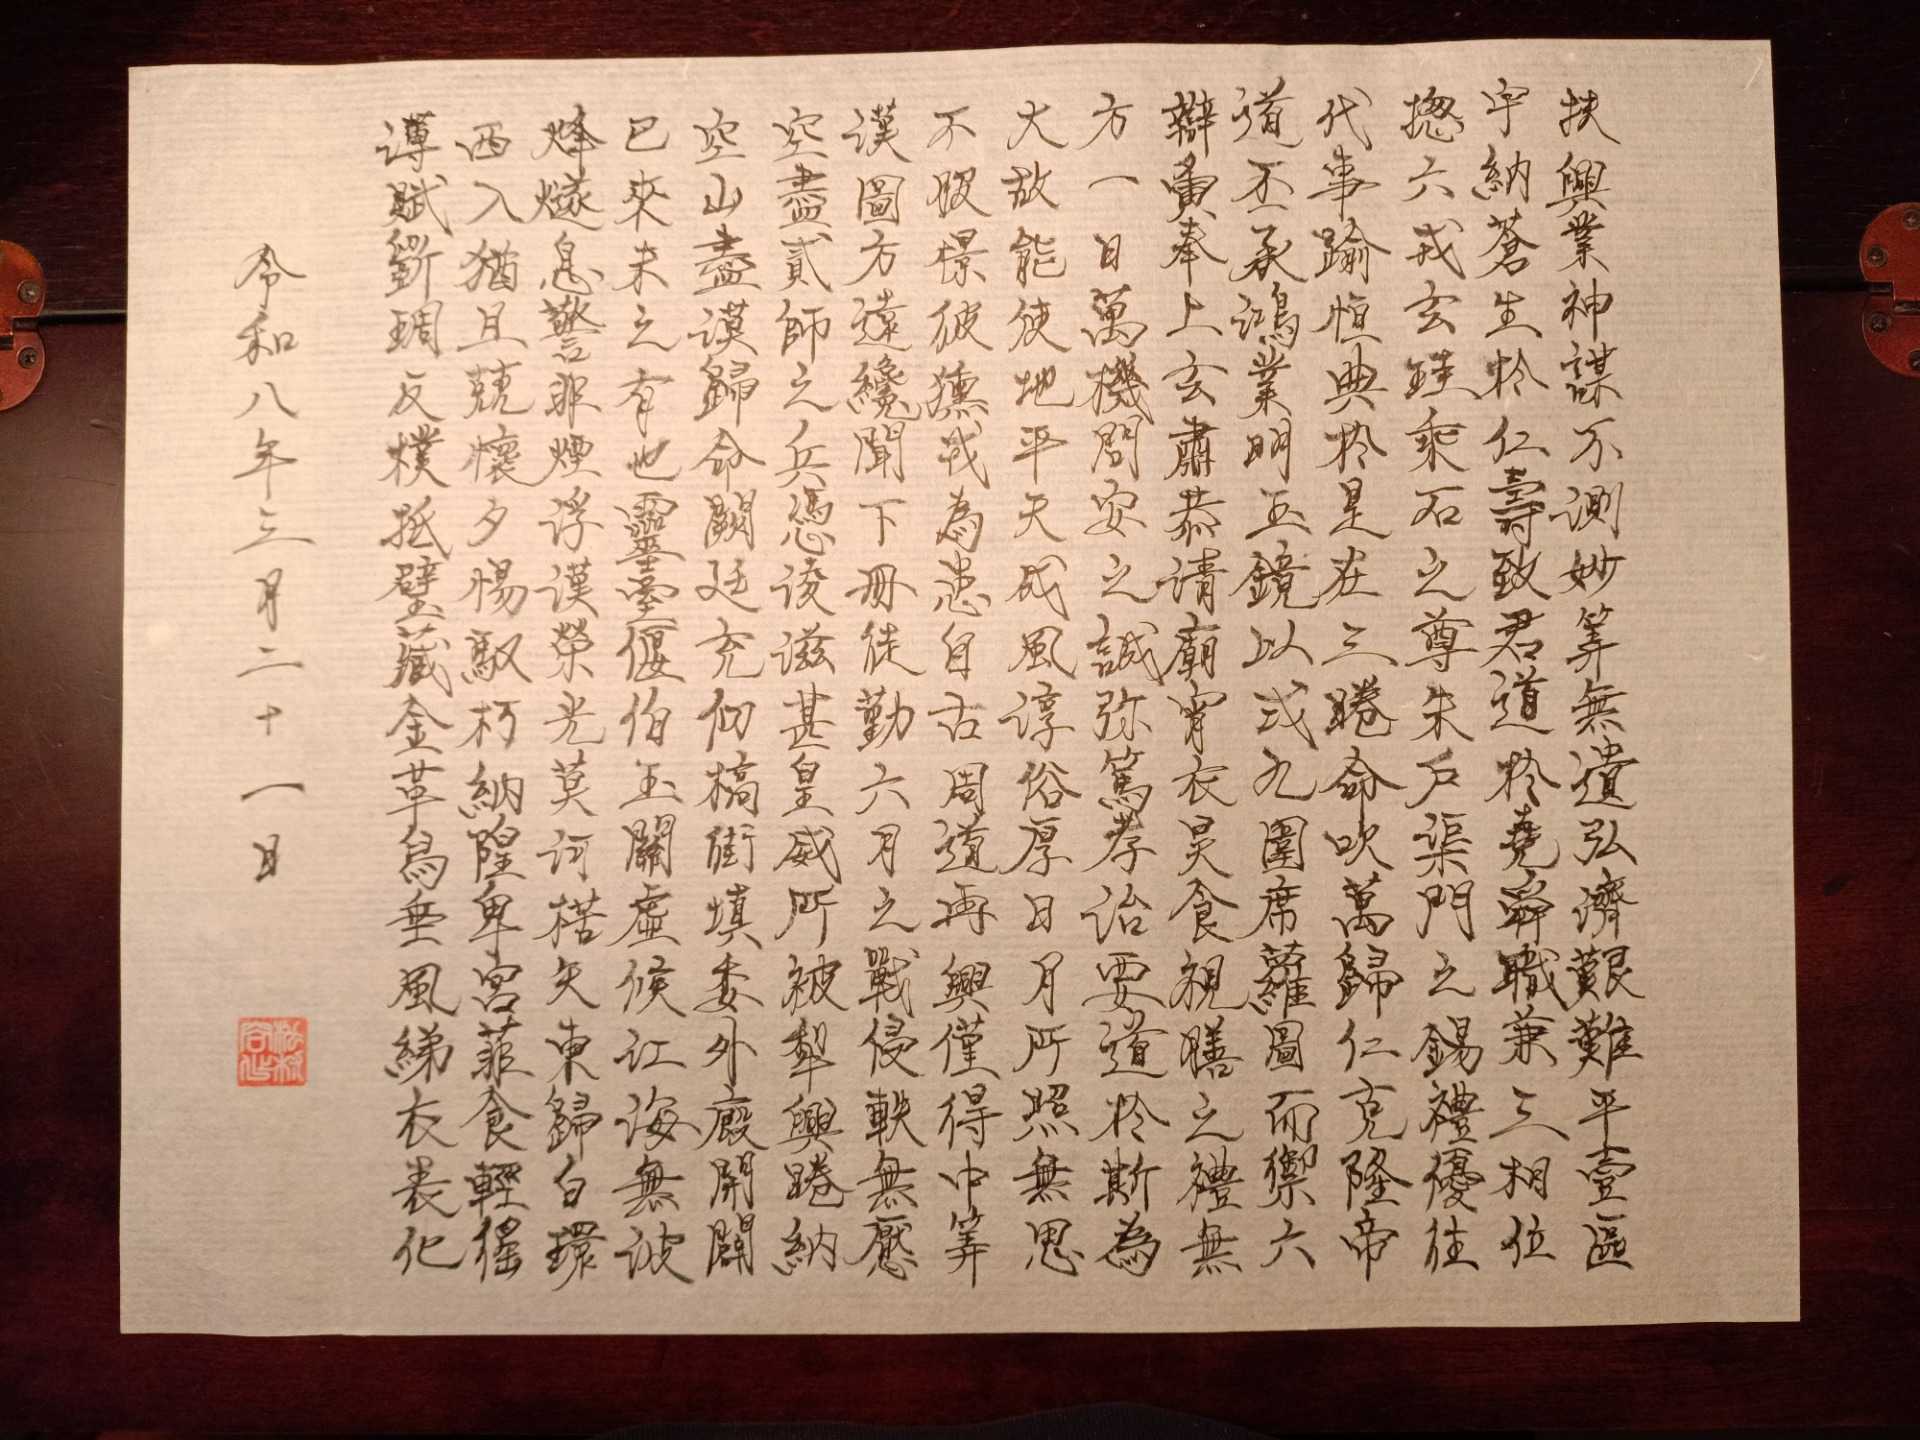 扶興業神謀不測妙筭無遺弘濟艱難平壹區
宇納蒼生於仁壽致君道於堯舜職兼三相位
揔六戎玄珪乘石之尊朱戶渠門之錫禮優往
代事踰恒典於是在三睠命吹萬歸仁克隆帝
道丕承鴻業明玉鏡以式九圍席蘿圖而禦六
辯寅奉上玄肅恭清廟宵衣昃食視膳之禮無
方一日萬機問安之誠弥篤孝治要道於斯為
大故能使地平天成風淳俗厚日月所照無思
不服憬彼獯戎為患自古周道再興僅得中筭
漢圖方遠纔聞下冊徒勤六月之戰侵軼無厭
空盡貳師之兵憑淩滋甚皇威所被犁興睠納
空山盡漠歸命闕廷充仞槁街填委外廄開闢
已來未之有也靈臺偃伯玉關虛候江海無波
烽燧息警非煙浮漢榮光莫河楛矢東歸白環
西入猶且兢懷夕惕馭朽納隍卑宮菲食輕徭
薄賦斵琱反樸抵璧藏金革舄垂風綈衣表化
令和八年三月二十一日